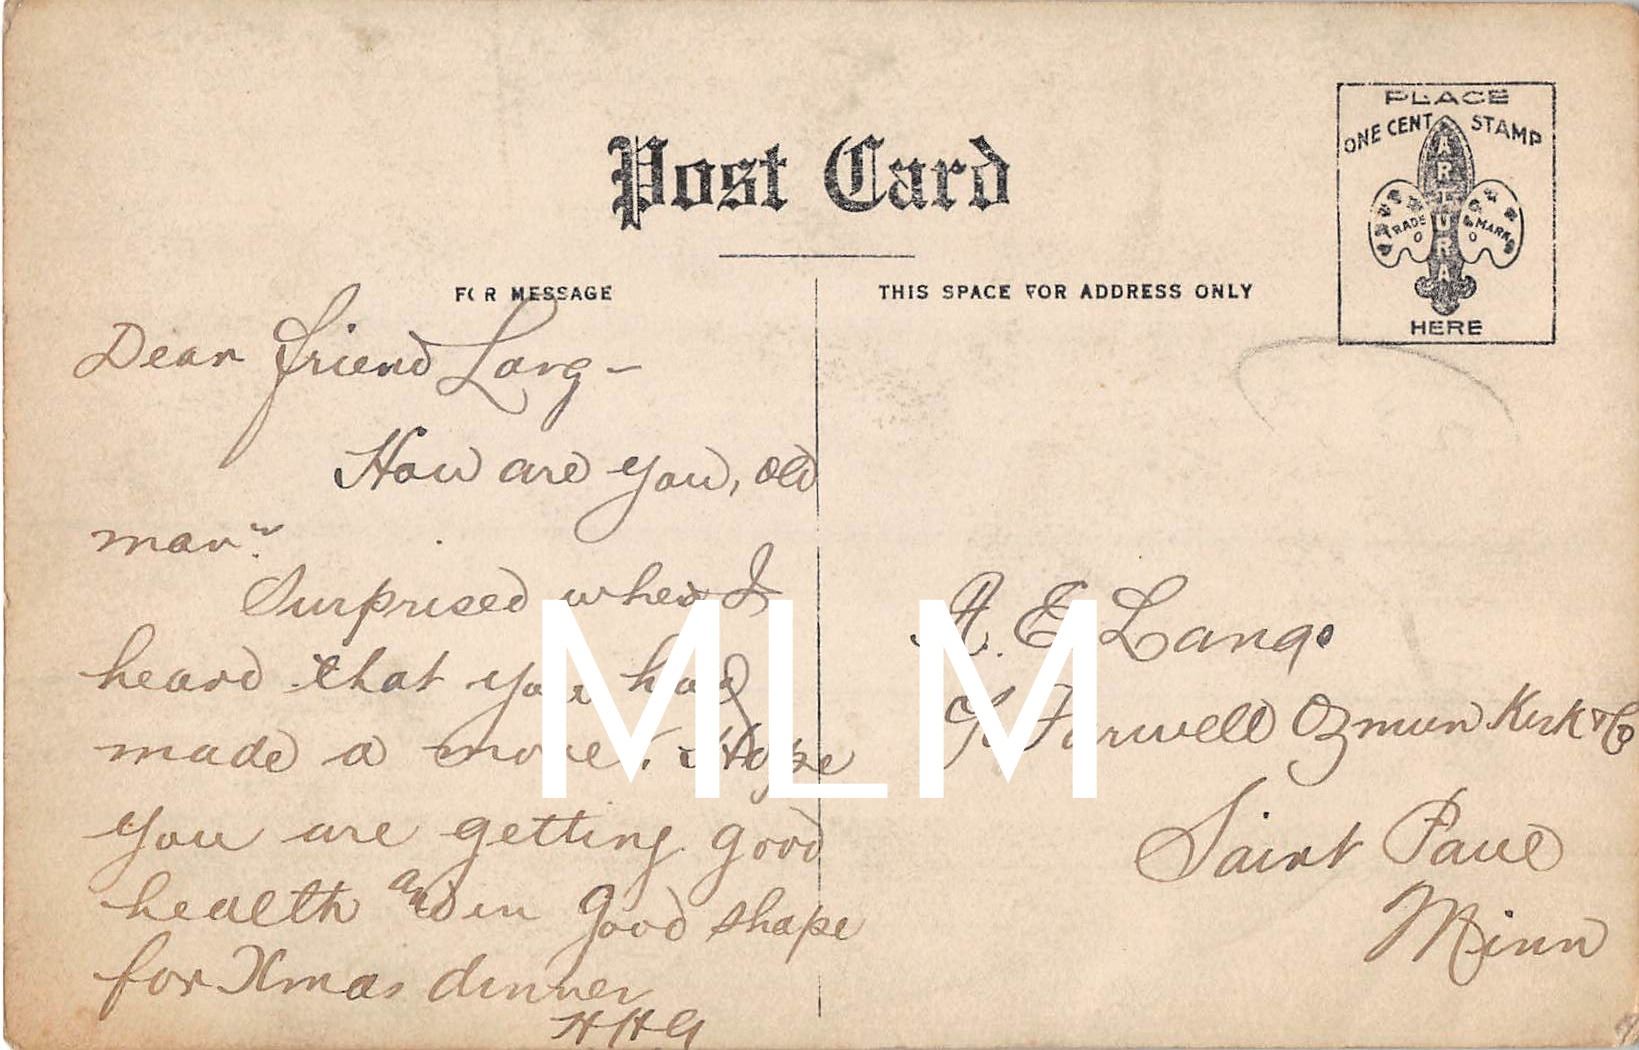 Post Card
PLACE
ONE CENT STAMP
ARTURA
TRADE MARK
HERE
FOR MESSAGE
THIS SPACE FOR ADDRESS ONLY
Dear friend Lang -
How are you, old
man?
Surprised when I
heard that you had
made a move. Hope
you are getting good
health and in good shape
for Xmas dinner
HHG
A. E. Lang.
℅ Farwell Ozmun Kirk & Co
Saint Paul
Minn
MLM